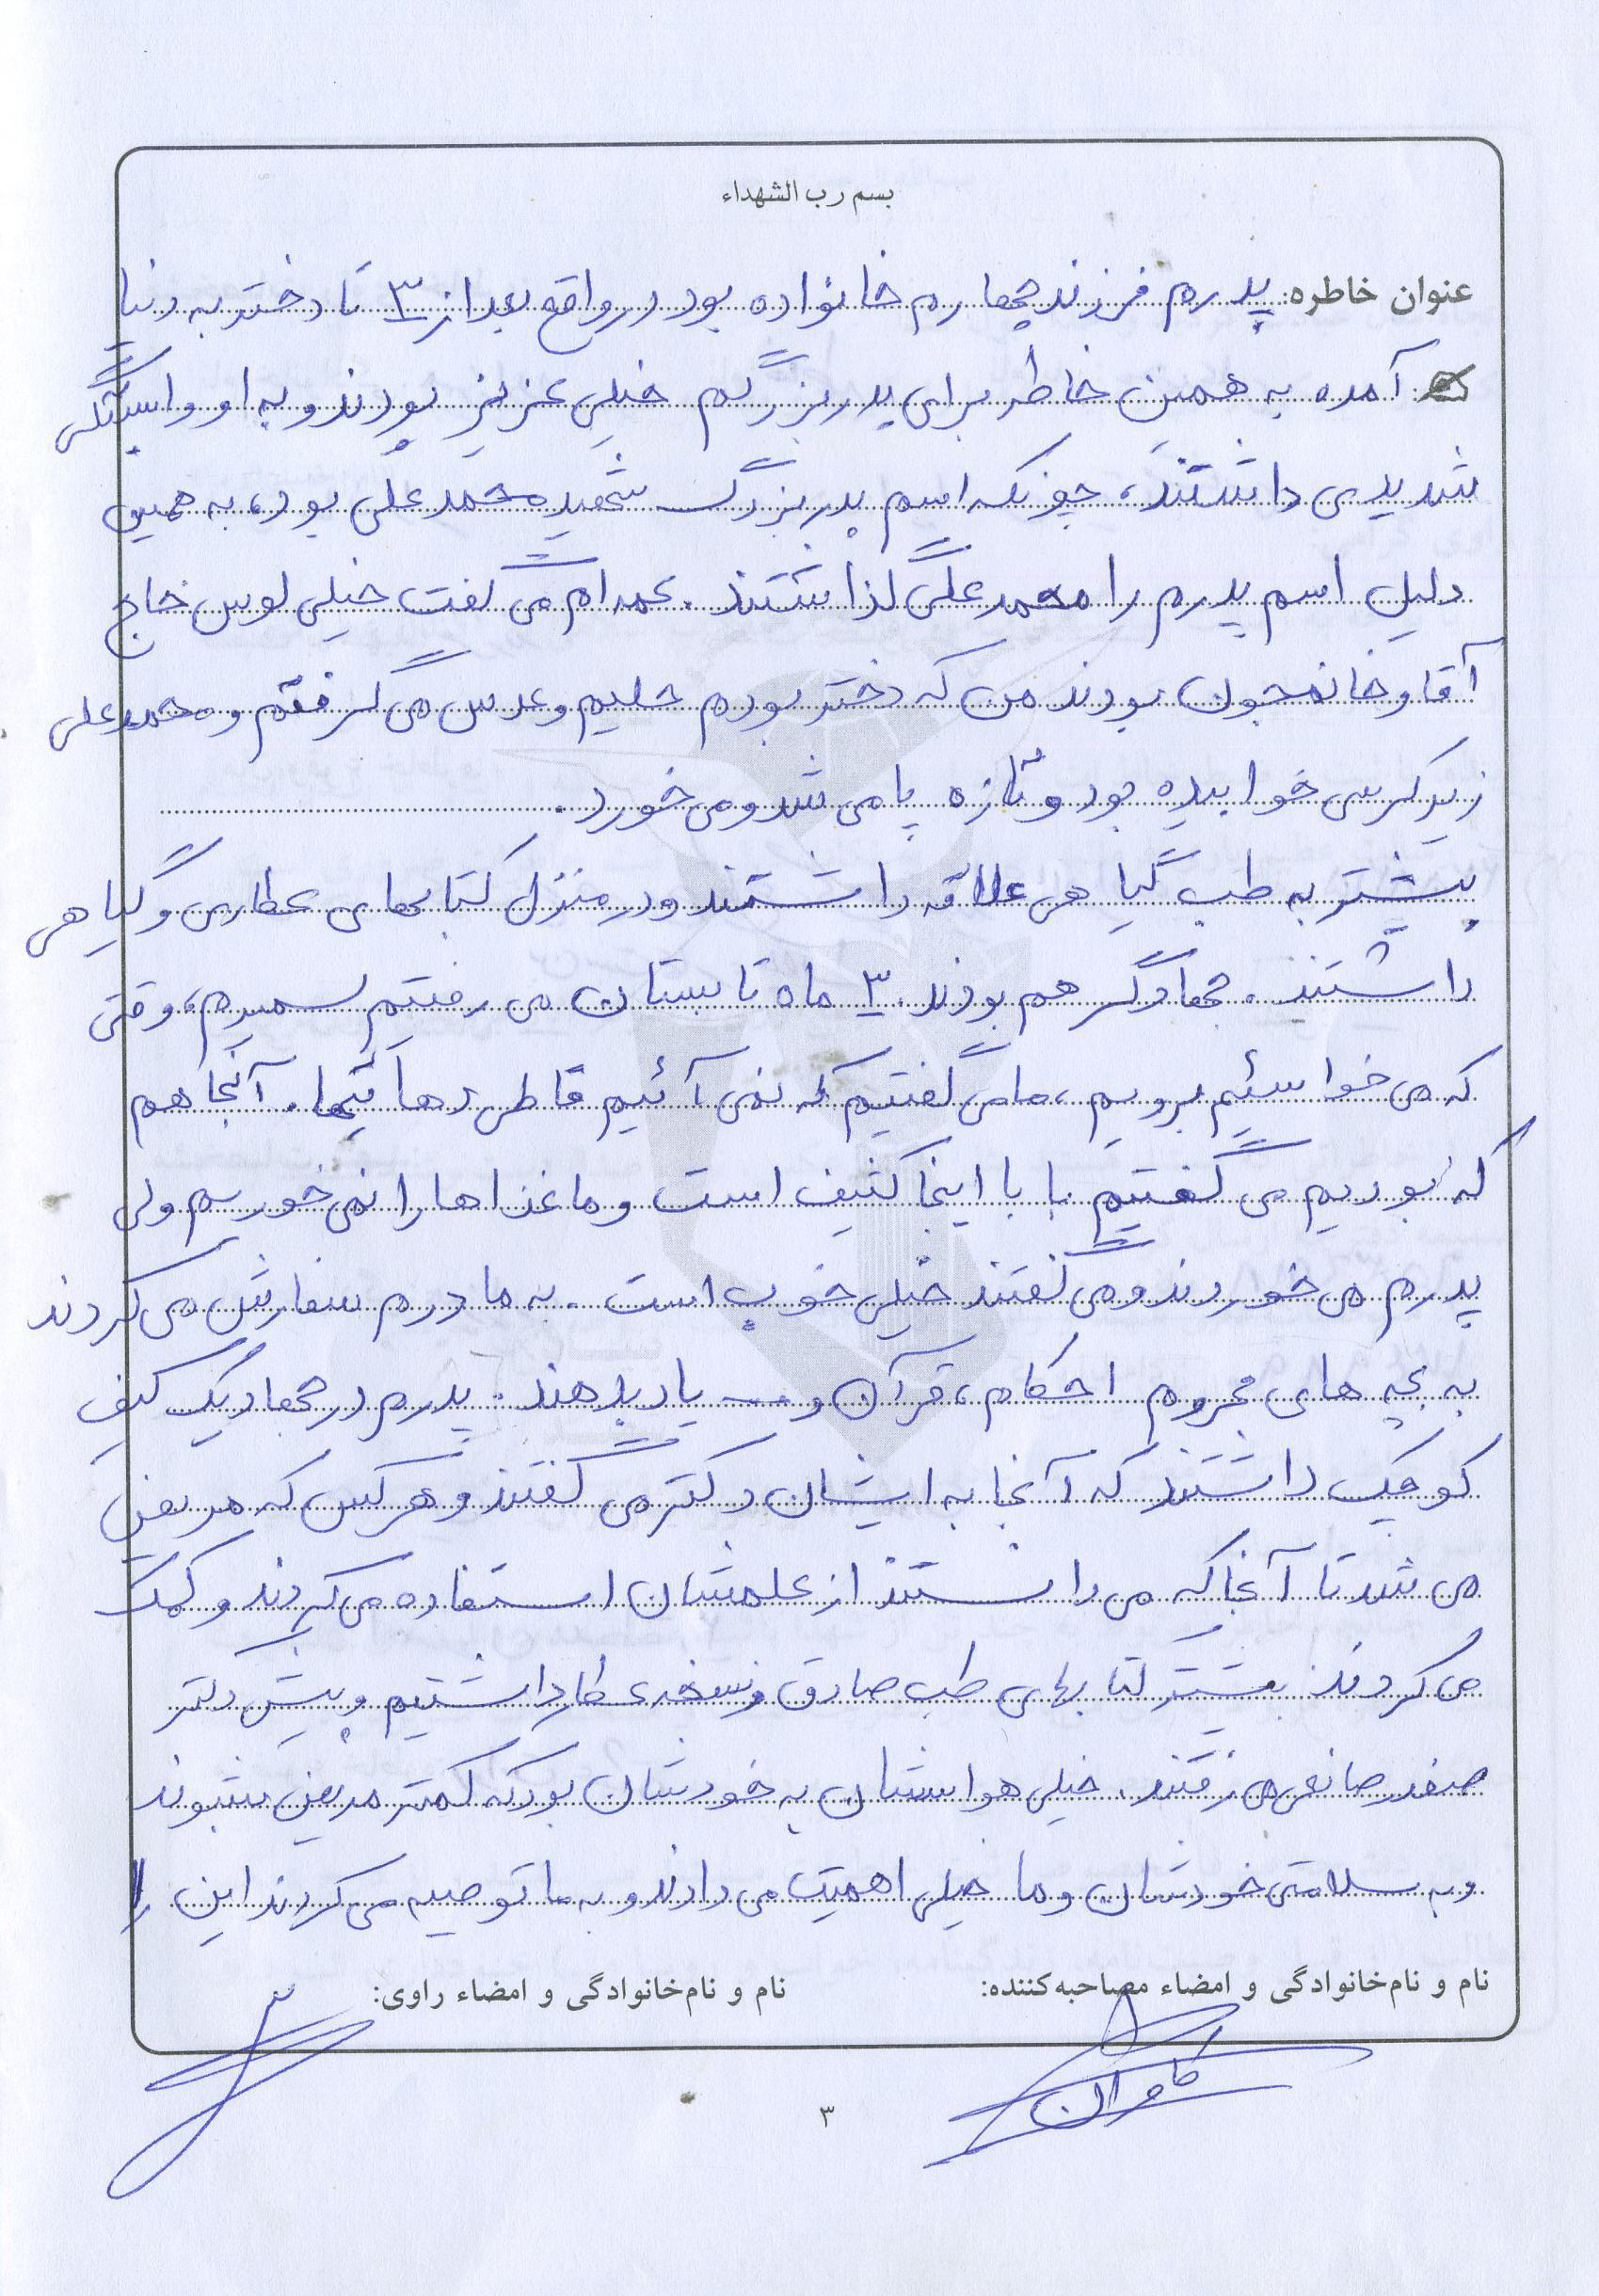 بسم رب الشهداء
عنوان خاطره: پدرم فرزند چهارم خانواده بود در واقع بعد از ۳ تا دختر به دنیا
آمده به همین خاطر برای پدربزرگم خیلی عزیز بودند و به او وابستگی
شدیدی داشتند، چونکه اسم پدربزرگ شهید محمدعلی بود، به همین
دلیل اسم پدرم را محمدعلی گذاشتند. عمه‌ام می گفت خیلی لوس حاج
آقا و خانمجون بودند من که دختر بودم حلیم و عدس می گرفتم و محمدعلی
زیر کرسی خوابیده بود و تازه پا می شد و می خورد.
بیشتر به طب گیاهی علاقه داشتند و در منزل کتابهای عطاری و گیاهی
داشتند. جهادگر هم بودند. ۳ ماه تابستان می رفتیم سمیرم، وقتی
که می خواستیم برویم، ما می گفتیم که نمی آئیم قاطی دهاتیها. آنجا هم
که بودیم می گفتیم بابا اینجا کثیف است و ما غذاها را نمی خوریم ولی
پدرم می خوردند و می گفتند خیلی خوب است. به مادرم سفارش می کردند
به بچه های محروم احکام، قرآن و ... یاد بدهند. پدرم در جهاد یک کیف
کوچک داشتند که آنجا به ایشان دکتر می گفتند و هرکس که مریض
می شد تا آنجا که می دانستند از علمشان استفاده می کردند و کمک
می کردند بیشتر کتابهای طب صادق و نسخه عطار داشتیم و پیش دکتر
صفدر صانعی می رفتند. خیلی هواسشان به خودشان بود که کمتر مریض بشوند
و به سلامتی خودشان و ما خیلی اهمیت می دادند و به ما توصیه می کردند این را
نام و نام‌خانوادگی و امضاء مصاحبه‌کننده:
نام و نام‌خانوادگی و امضاء راوی:
کامران
۳